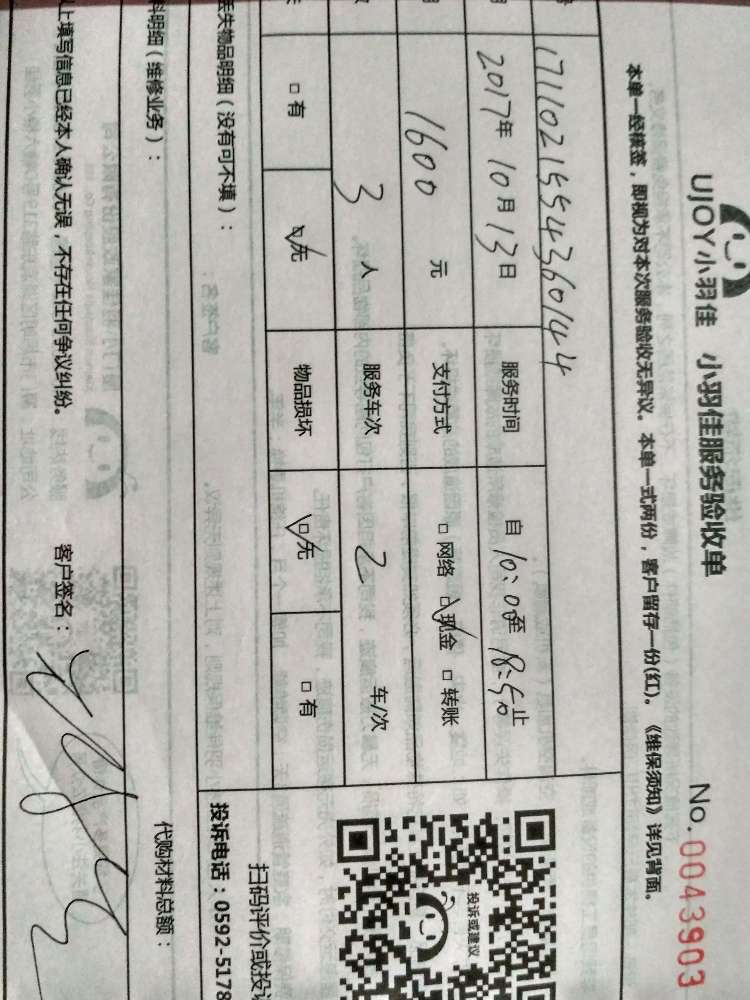 UJOY小羽佳 小羽佳服务验收单 No.0043903
本单一经核签，即视为对本次服务验收无异议。本单一式两份，客户留存一份(红)。《维保须知》详见背面。
号 1711021554360144
2017年10月13日 服务时间 自 10:0 至 18:50 止
1600 元 支付方式 □ 网络 □ 现金 □ 转账
次 3 人 服务车次 2 车/次
□ 有 □ 无 物品损坏 □ 无 □ 有
投诉或建议
扫码评价或投诉
丢失物品明细（没有可不填）： 投诉电话：0592-5178
料明细（维修业务）： 代购材料总额：
上填写信息已经本人确认无误，不存在任何争议纠纷。 客户签名：